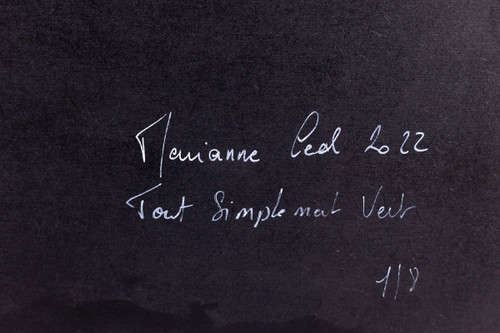 Marianne Ced 2022
Tout Simplemnt Vert
1/8